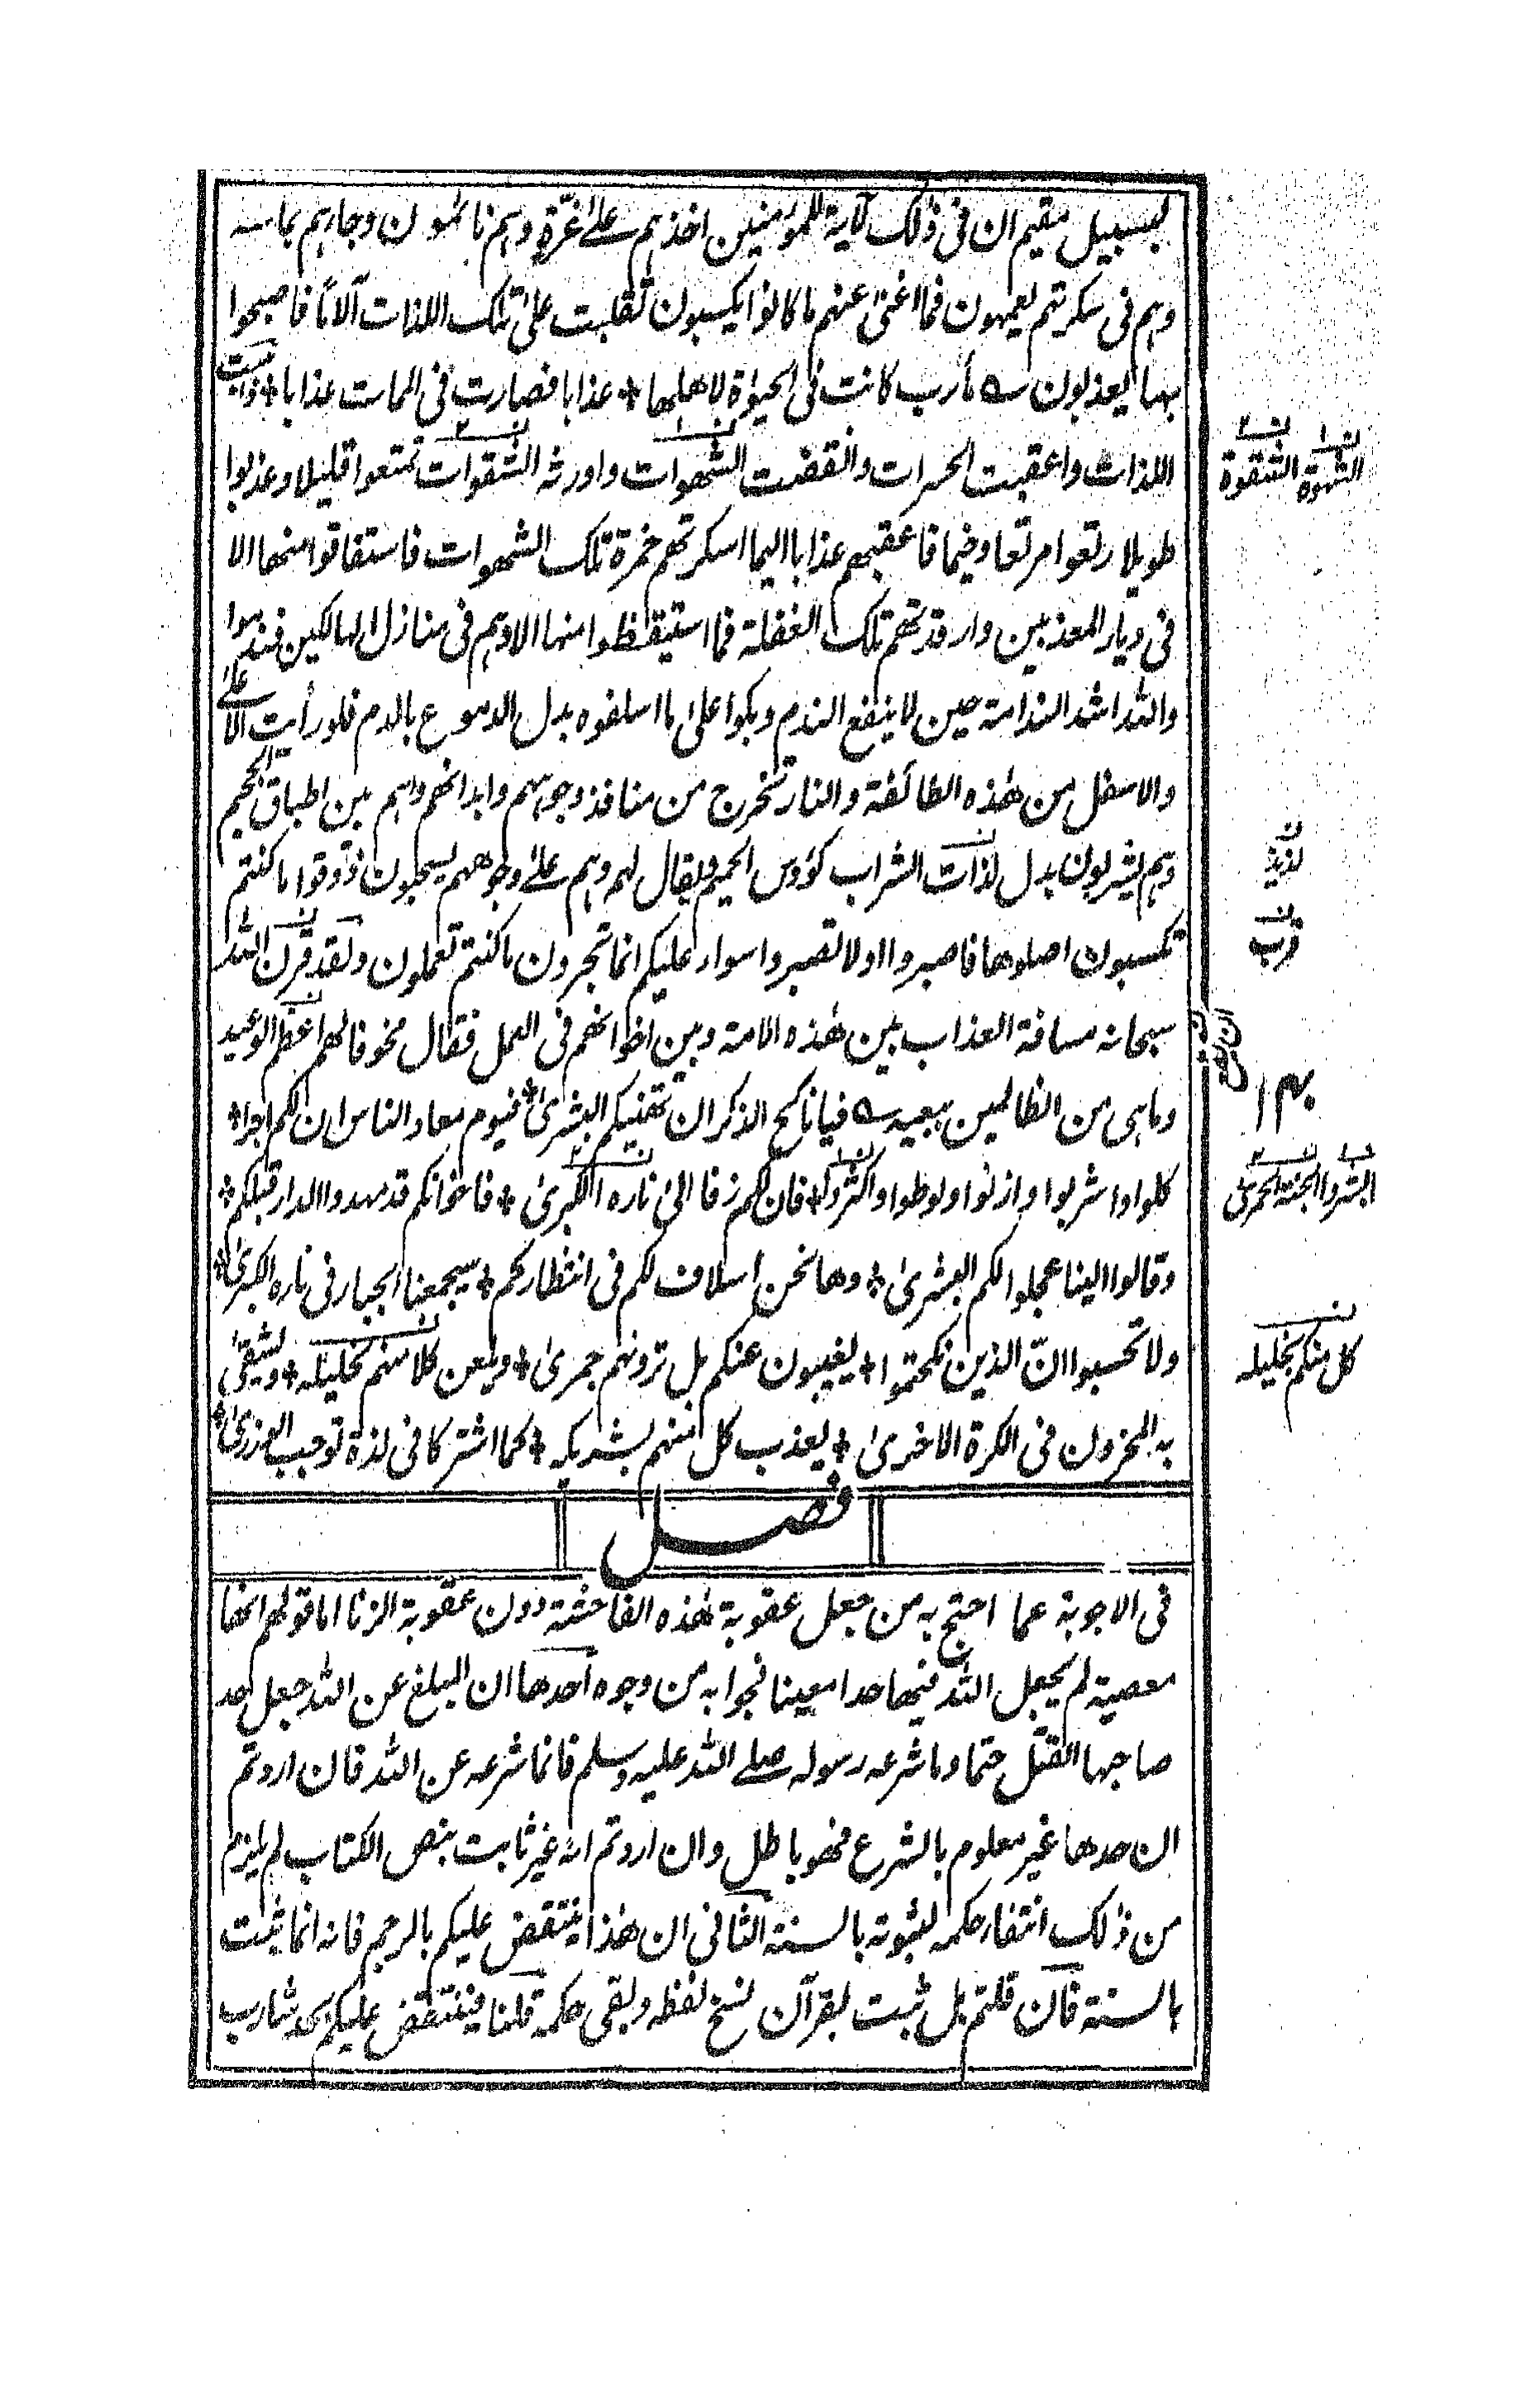 لبسبيل مقيم ان فى ذٰلك لآية للمؤمنين اخذهم علىٰ غرّة وهم نائمون وجاءهم باسه
وهم فى سكرتهم يعمهون فما اغنىٰ عنهم ما كانوا يكسبون تقلبت علىٰ تلك اللذات آلامًا فاصبحوا
بها يعذبون ؎ مآرب كانت فى الحيوٰة لاهلها * عذابا فصارت فى الممات عذابا * ذهبت
اللذات واعقبت الحسرات وانقضت الشهوات واورثه الشقوات تمتعوا قليلا وعذبوا
طويلا رتعوا مرتعا وخيما فاعقبهم عذابا اليما اسكرتهم خمرة تلك الشهوات فاستفاقوا منها الا
فى ديار المعذبين وارقدتهم تلك الغفلة فما استيقظوا منها الا وهم فى منازل الهالكين فندموا
والله اشد الندامة حين لا ينفع الندم وبكوا علىٰ ما اسلفوه بدل الدموع بالدم فلو رأيت الاعلىٰ
والاسفل من هٰذه الطائفة والنار تخرج من منافذ وجوههم وابدانهم وهم بين اطباق الجحيم
وهم يشربون بدل لذات الشراب كؤوس الحميم ويقال لهم وهم علىٰ وجوههم يسحبون ذوقوا ما كنتم
تكسبون اصلوها فاصبروا او لا تصبروا سواء عليكم انما تجزون ما كنتم تعملون ولقد قرن الله
سبحانه مسافة العذاب بين هٰذه الامة وبين اخوانهم فى العمل فقال مخوفا لهم اعظم الوعيد
وما هى من الظالمين ببعيد ؎ فيا ناكح الذكران تهنيكم البشرىٰ * فيوم معاد الناس ان لكم اجرا *
كلوا واشربوا وازنوا ولوطوا واكثروا * فان لكم زفا الىٰ ناره الكبرىٰ * فاخوانكم قد مهدوا الدار قبلكم *
وقالوا الينا عجلوا لكم البشرىٰ * وها نحن اسلاف لكم فى انتظاركم * سيجمعنا الجبار فى ناره الكبرىٰ *
ولا تحسبوا انّ الذين نكحتموا * يغيبون عنكم بل ترونهم جهرىٰ * ويلعن كلا منهم بخليله * ويشقىٰ
به المحزون فى الكرة الاخرىٰ * يعذب كل منهم بشريكه * كما اشتركا فى لذة توجب الوزرىٰ *
فصل
فى الاجوبة عما احتج به من جعل عقوبة هٰذه الفاحشة دون عقوبة الزنا اما قولهم انها
معصية لم يجعل الله فيها حدا معينا فجوابه من وجوه احدها ان المبلغ عن الله جعل حد
صاحبها القتل حتما وما شرعه رسوله صلى الله عليه وسلم فانما شرعه عن الله فان اردتم
ان حدها غير معلوم بالشرع فهو باطل وان اردتم انه غير ثابت بنص الكتاب لم يلزم
من ذٰلك انتفاء حكمه لثبوته بالسنة الثانى ان هٰذا ينتقض عليكم بالرجم فانه انما ثبت
بالسنة فان قلتم بل ثبت بقرآن نسخ لفظه وبقى حكمه قلنا فينتقض عليكم بحد شارب
الشهوة الشقوة
لذيذ
قرب
كل منكم بخليله